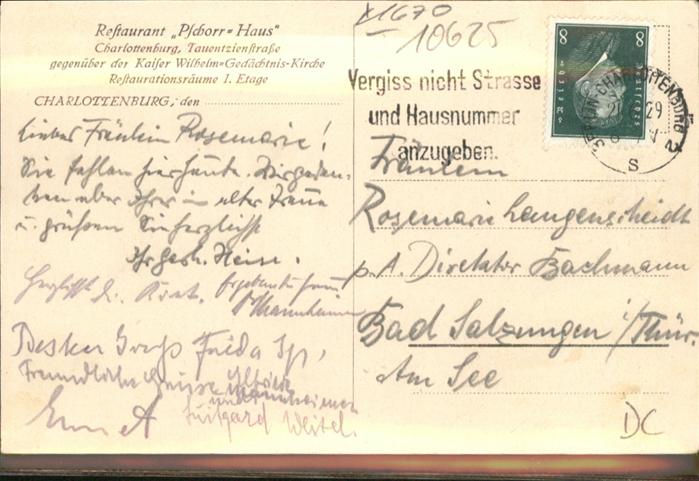 Restaurant „Pschorr=Haus"
Charlottenburg, Tauentzienstraße
gegenüber der Kaiser Wilhelm=Gedächtnis-Kirche
Restaurationsräume I. Etage
CHARLOTTENBURG, den
Liebes Fräulein Rosemarie!
Sie fehlen hier heute. Wir geden-
ken aber Ihrer in alter Treue
u. grüßen Sie herzlichst
Ihr Gerh. Heise.
Herzlichst
Mannheimer
Bester Gruß Frida
Freundliche Grüße
Luitgard
x1670
10625
8 8
Vergiss nicht Strasse
und Hausnummer
anzugeben.
BERLIN-CHARLOTTENBURG 2
29
S
Fräulein
Rosemarie Langenscheidt
p. A. Direktor Bachmann
Bad Salzungen i/Thür.
Am See
DC